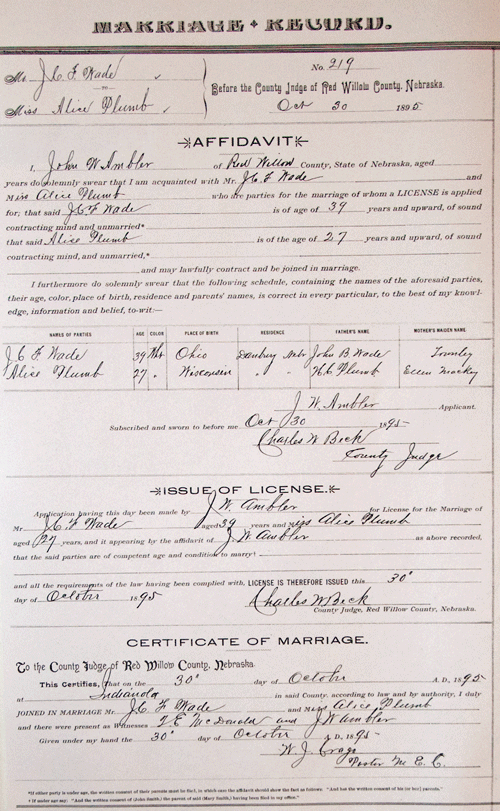 MARRIAGE RECORD.
Mr J C F Wade
TO
Miss Alice Plumb
No. 219
Before the County Judge of Red Willow County, Nebraska.
Oct 30 1895
AFFIDAVIT
I, John W Ambler of Red Willow County, State of Nebraska, aged
years do solemnly swear that I am acquainted with Mr. J C F Wade and
Miss Alice Plumb who are parties for the marriage of whom a LICENSE is applied
for; that said J C F Wade is of age of 39 years and upward, of sound
contracting mind and unmarried*
that said Alice Plumb is of the age of 27 years and upward, of sound
contracting mind, and unmarried,*
and may lawfully contract and be joined in marriage.
I furthermore do solemnly swear that the following schedule, containing the names of the aforesaid parties,
their age, color, place of birth, residence and parents' names, is correct in every particular, to the best of my knowl-
edge, information and belief, to-wit:
NAMES OF PARTIES AGE COLOR PLACE OF BIRTH RESIDENCE FATHER'S NAME MOTHER'S MAIDEN NAME
J C F Wade 39 Wht Ohio Danbury Nebr John B Wade Townley
Alice Plumb 27 " Wisconsin " " H C Plumb Ellen Mackey
J. W. Ambler Applicant.
Subscribed and sworn to before me Oct 30 1895
Charles W Beck
County Judge
ISSUE OF LICENSE.
Application having this day been made by J W. Ambler for License for the Marriage of
Mr J C F Wade aged 39 years and Miss Alice Plumb
aged 27 years, and it appearing by the affidavit of J. W Ambler as above recorded,
that the said parties are of competent age and condition to marry
and all the requirements of the law having been complied with, LICENSE IS THEREFORE ISSUED this 30"
day of October 1895 Charles W Beck
County Judge, Red Willow County, Nebraska.
CERTIFICATE OF MARRIAGE.
To the County Judge of Red Willow County, Nebraska.
This Certifies, That on the 30" day of October A. D., 1895
at Indianola in said County, according to law and by authority, I duly
JOINED IN MARRIAGE Mr. J C F Wade and Miss Alice Plumb
and there present as Witnesses McDonald and J W Ambler
Given under my hand the 30" day of October A. D. 1895
W. J. Crago
Pastor M. E. C.
*If either party is under age, the written consent of their parents must be filed, in which case the affidavit should show the fact as follows: "And has the written consent of his (or her) parents."
† If under age say: "And the written consent of (John Smith,) the parent of said (Mary Smith,) having been filed in my office."